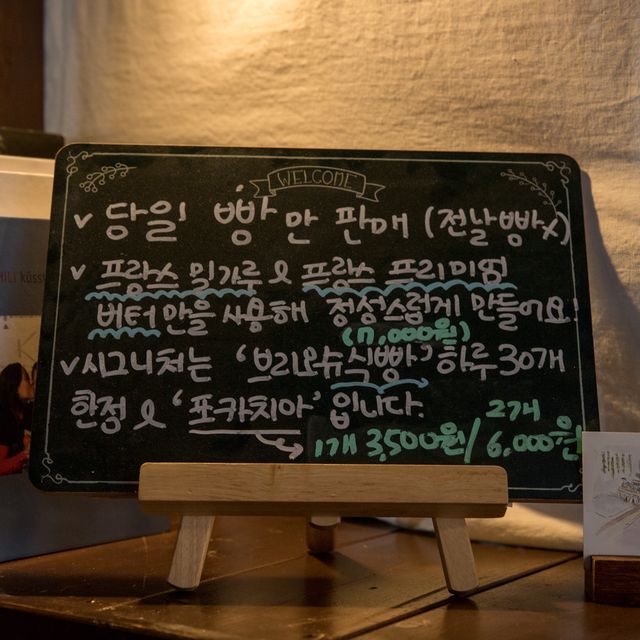 WELCOME
✓ 당일 빵만 판매 (전날빵X)
✓ 프랑스 밀가루 & 프랑스 프리미엄
버터만을 사용해 정성스럽게 만들어요!
(7,000원)
✓ 시그니처는 '브리오슈식빵' 하루 30개
한정 & '포카치아' 입니다.
2개
1개 3,500원/ 6,000원